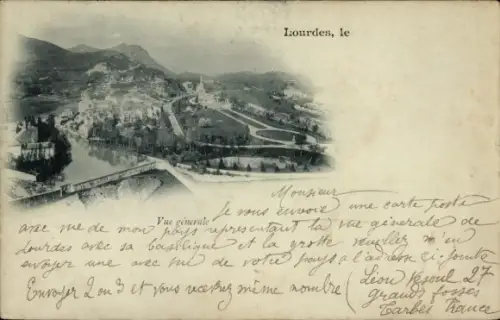 Lourdes, le
Vue générale
Monsieur
Je vous envoie une carte posta
avec vue de mon pays représentant la vue générale de
Lourdes avec sa basilique et la grotte veuillez m'en
envoyer une avec vue de votre pays a l'adresse ci-jointe
Envoyer 2 ou 3 et vous recevrez même nombre
Léon Vesoul 27
grands fossés
Tarbes France